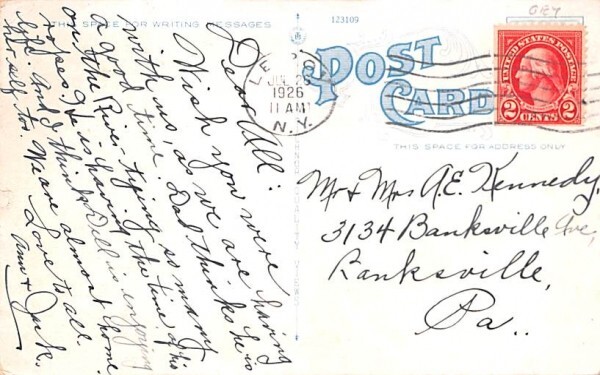 THIS SPACE FOR WRITING MESSAGES
Dear All:
Wish you were
with us, as we are having
a good time. Dad thinks he is
on the River, tying so many
ropes. He is having the time of his
life. And I think Dell is enjoying
herself too. We are almost home
Love to all.
Ann & Jack.
123109
POST
CARD
THIS SPACE FOR ADDRESS ONLY
1926
11 AM
N.Y.
UNITED STATES POSTAGE
2 CENTS 2
Mr & Mrs A.E. Kennedy.
3134 Banksville Ave,
Banksville,
Pa..